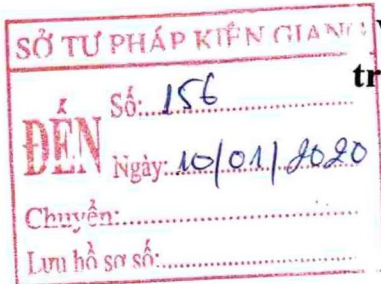 SỞ TƯ PHÁP KIÊN GIANG
tr
ĐẾN
Số: 156
Ngày: 10/01/2020
Chuyển:
Lưu hồ sơ số: